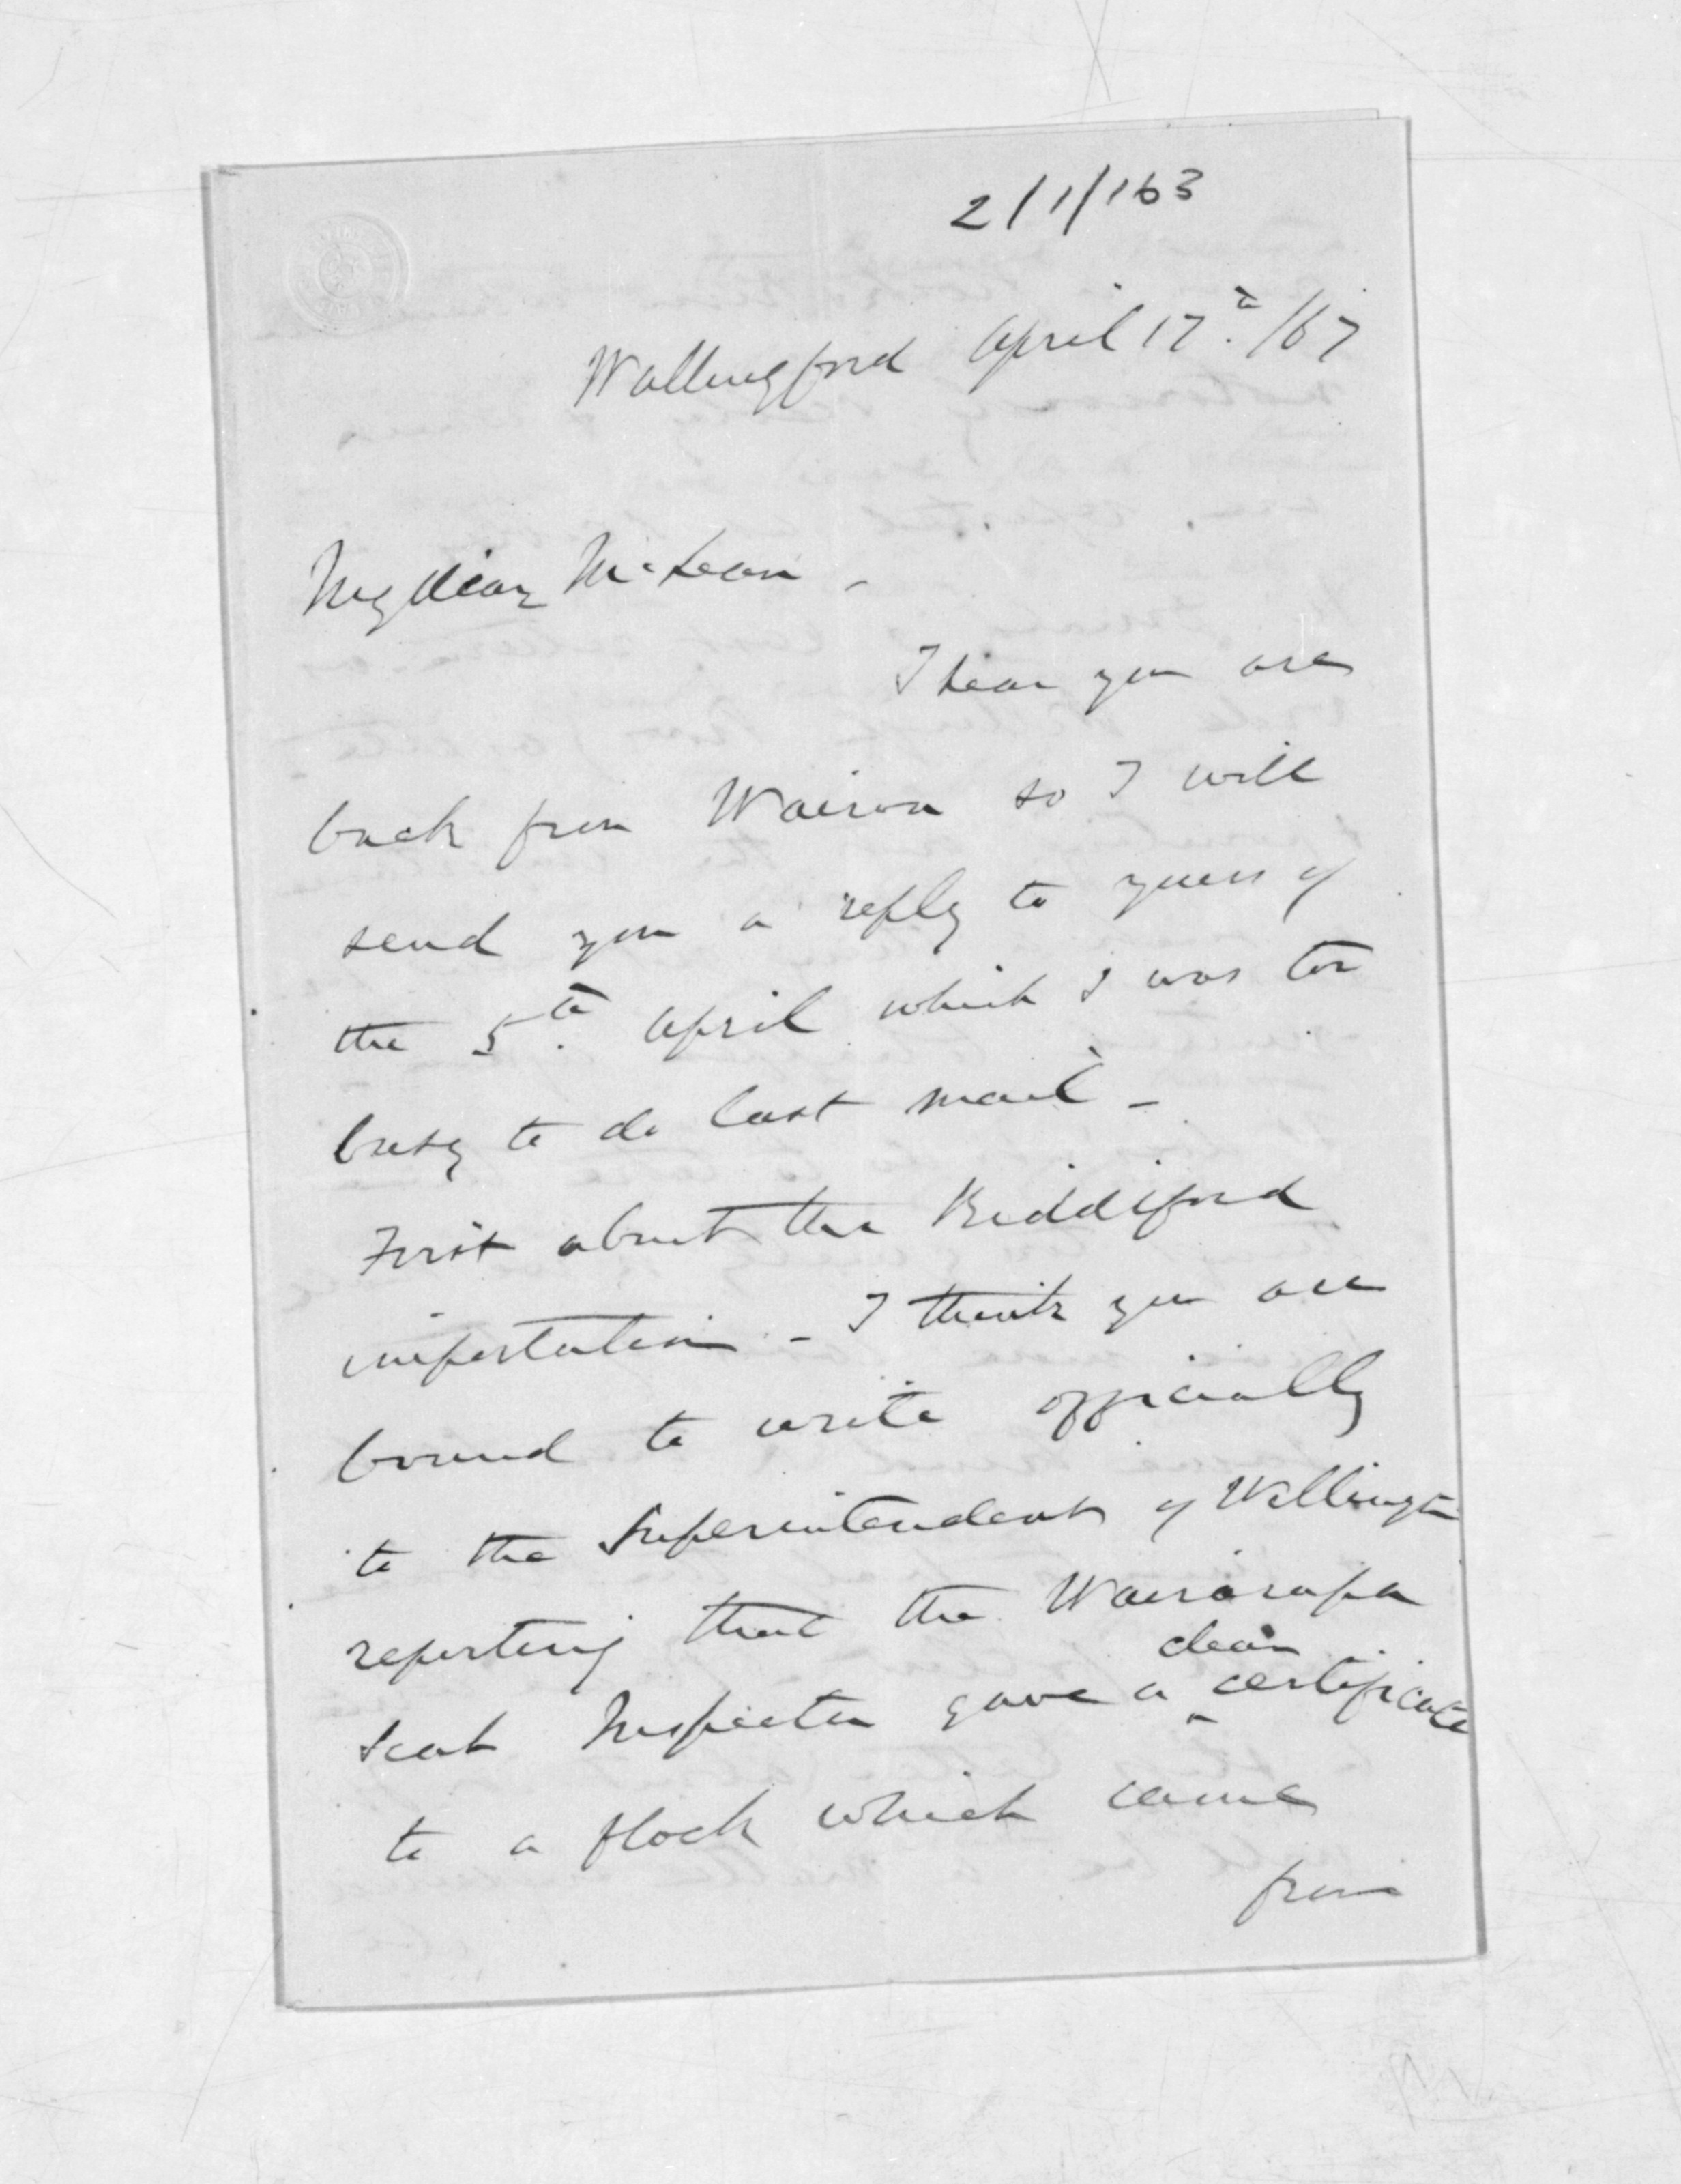 2/1/163
Wallingford April 17th/67
My dear McLean -
I hear you are
back from Wairoa so I will
send you a reply to yours of
the 5th April which I was too
busy to do last mail -
First about the Riddiford
importation - I think you are
bound to write officially
to the Superintendent of Wellington
reporting that the Wairarapa
clean
Scab Inspector gave a ^ certificate
to a flock which came
from